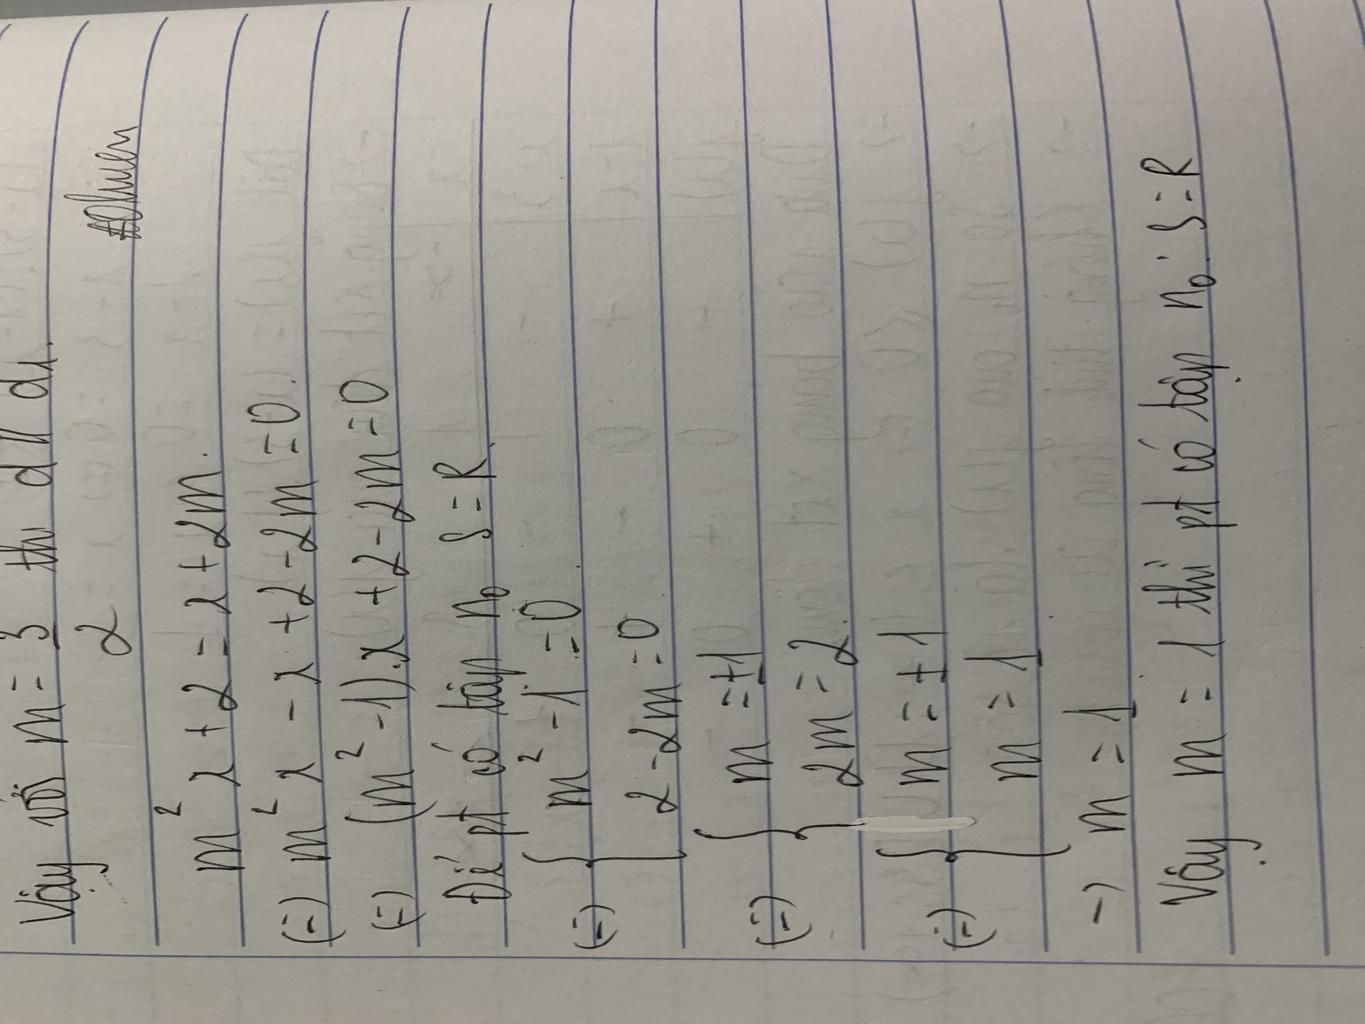 Vậy với m = 3 thì d // d1.
2
m² x + 2 = x + 2m.
(=) m² x - x + 2 - 2m = 0.
(=) (m² - 1).x + 2 - 2m = 0
Để pt có tập n₀ S = R.
(=) { m² - 1 = 0
2 - 2m = 0
(=) { m = ±1
2m = 2.
(=) { m = ±1
m = 1
-) m = 1
Vậy m = 1 thì pt có tập n₀: S = R